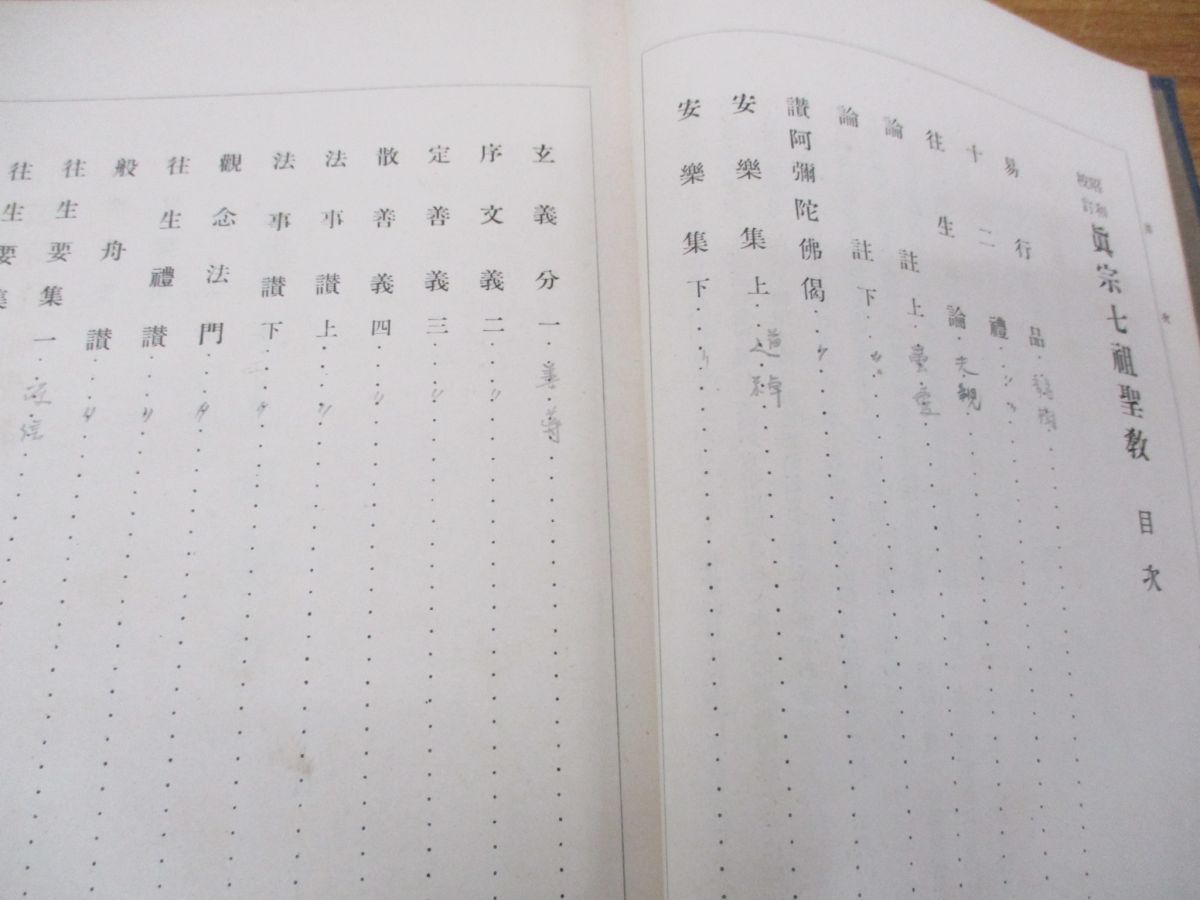 昭和校訂 眞宗七祖聖教 目次
易行品 龍樹
十二禮 〃
往生論 天親
論註上 曇鸞
論註下 〃
讃阿彌陀佛偈 〃
安樂集上 道綽
安樂集下 〃
目次
玄義分一 善導
序文義二 〃
定善義三 〃
散善義四 〃
法事讃上 〃
法事讃下 〃
觀念法門 〃
往生禮讃 〃
般舟讃 〃
往生要集一 源信
往生要集